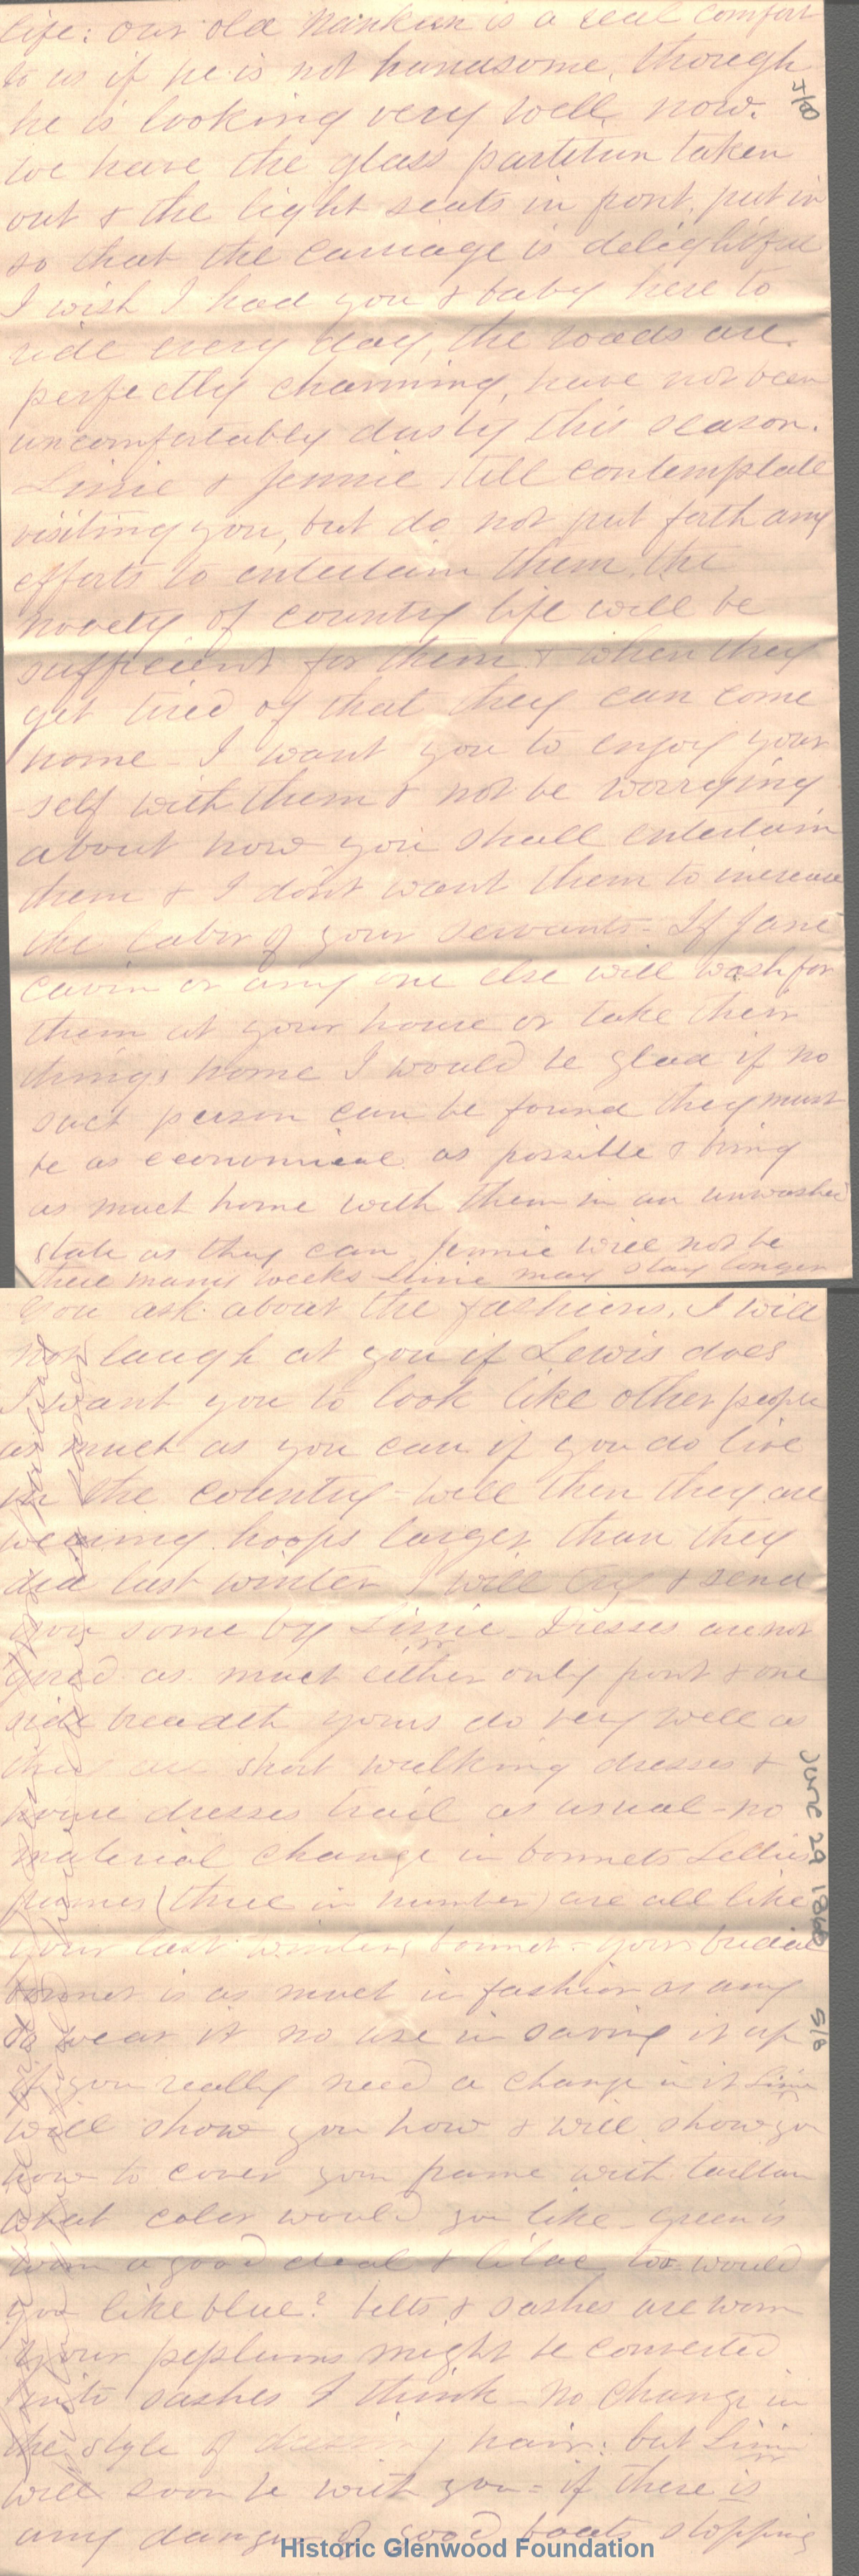 life: our old Nankeen is a real comfort
to us if he is not handsome, though
he is looking very well now.
we have the glass partition taken
out & the light seats in front, put in
so that the carriage is delightful
I wish I had you & baby here to
ride every day, the roads are
perfectly charming, have not been
uncomfortably dusty this season.
Linie & Jennie still contemplate
visiting you, but do not put forth any
efforts to entertain them, the
novelty of country life will be
sufficient for them & when they
get tired of that they can come
home - I want you to enjoy your
self with them & not be worrying
about how you shall entertain
them & I don't want them to increase
the labor of your servants - If Jane
or any one else will wash for
them at your house or take their
things home I would be glad if no
such person can be found they must
be as economical as possible & bring
as much home with them in an unwashed
state as they can. Jennie will not be
there many weeks Linie may stay longer
You ask about the fashions. I will
not laugh at you if Lewis does
I want you to look like other people
as much as you can if you do live
in the country - well then they are
wearing hoops larger than they
did last winter I will try & send
you some by Linie - Dresses are not
gored as much either only front & one
side breadth yours do very well as
they are short walking dresses &
house dresses trail as usual - no
material change in bonnets Lellies
frames (three in number) are all like
your last winters bonnet - your bridal
bonnet is as much in fashion as any
so wear it no use in saving it up
if you really need a change in it Linie
will show you how & will show you
how to cover your frame with tarltan
what color would you like - green is
worn a good deal & lilac too would
you like blue? belts & sashes are worn
your peplums might be converted
into sashes I think - No change in
the style of dressing hair: but Linie
will soon be with you = if there is
any danger of good boats stopping
June 29 1868
5/8
Historic Glenwood Foundation